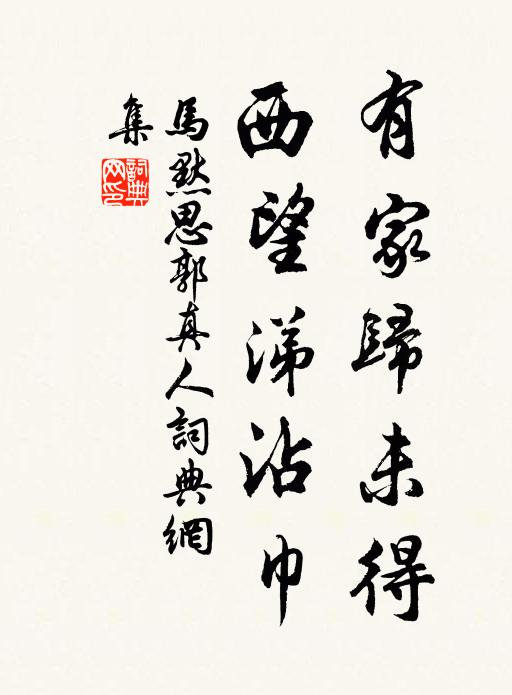 有家歸未得
西望涕沾巾
馬默思郭真人詞典網
集
詞典網印